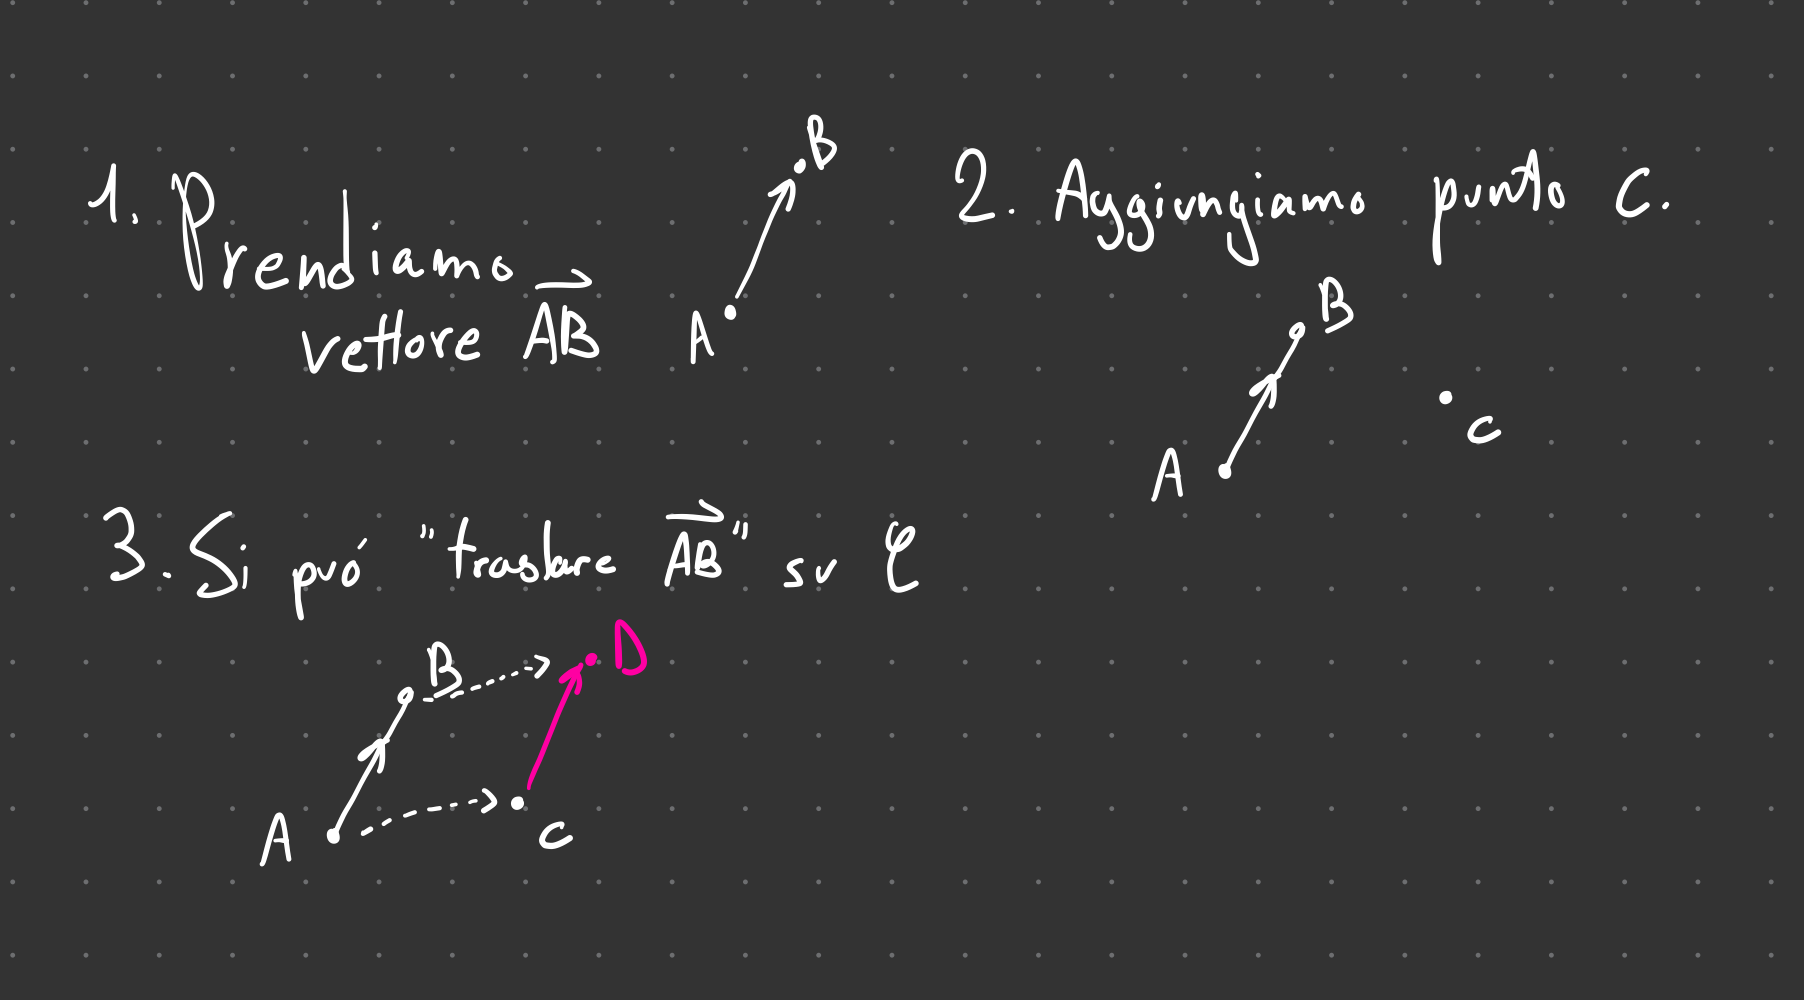 1. Prendiamo
vettore AB
B
A
2. Aggiungiamo punto C.
B
C
A
3. Si puó "traslare AB" su C
B
D
A
C